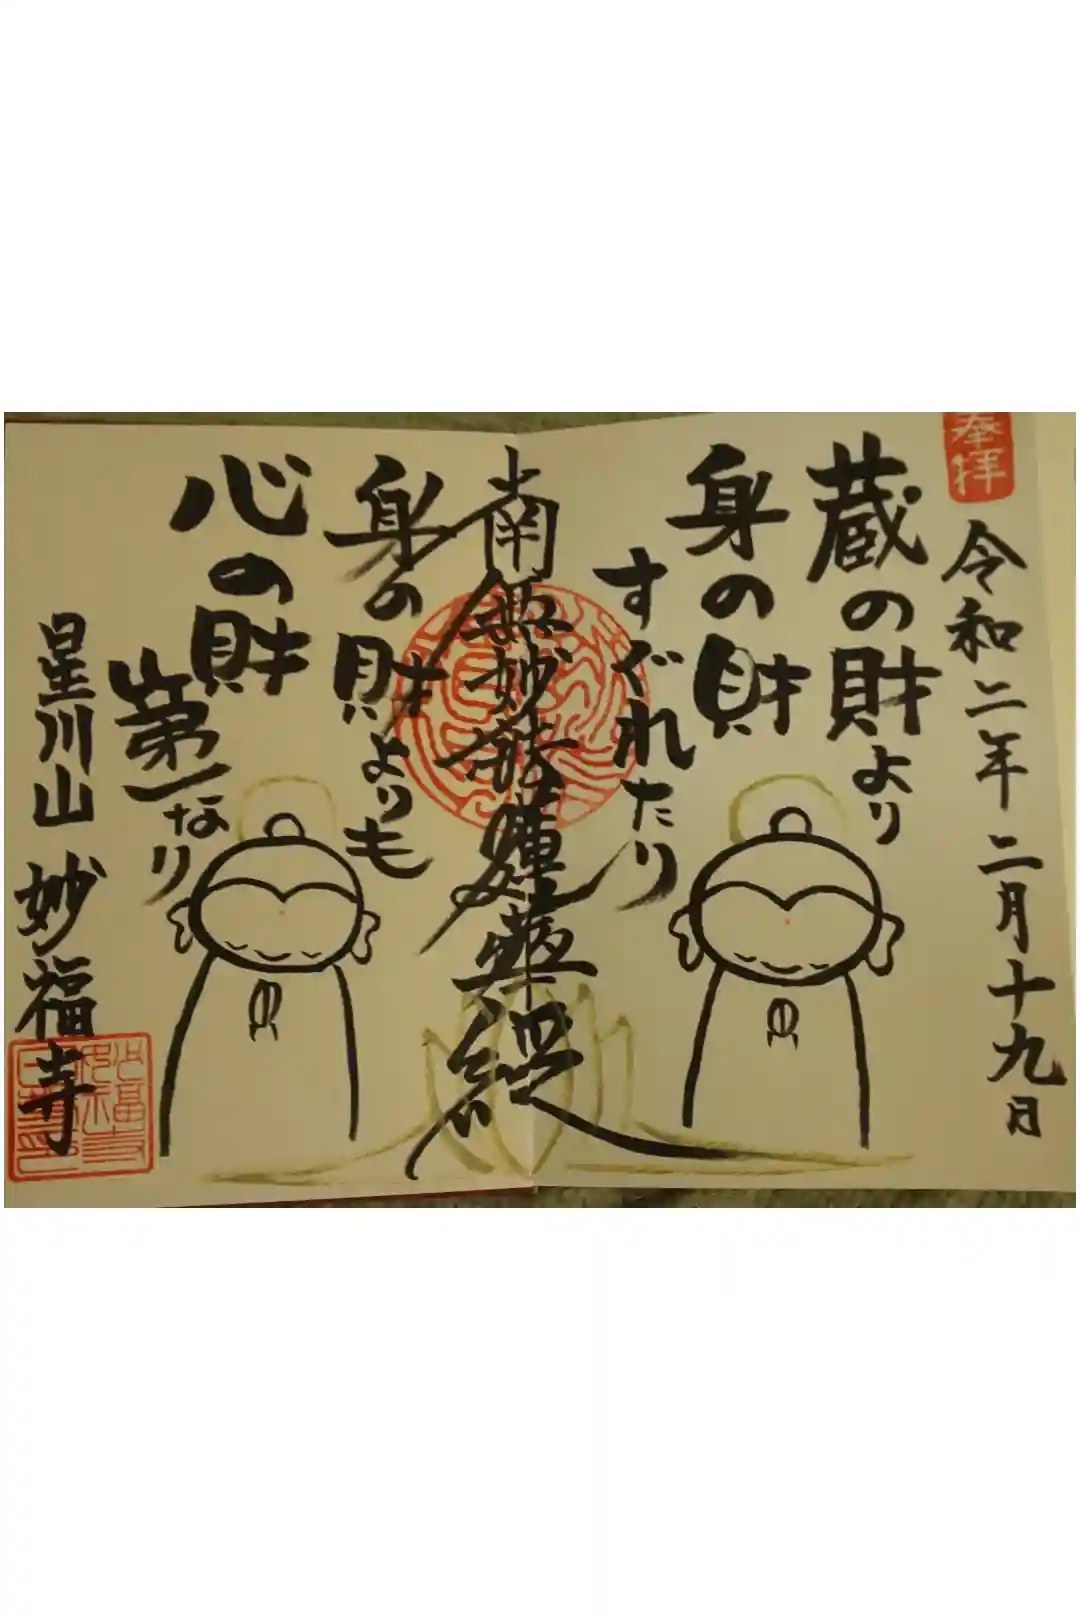 奉拝
令和二年二月十九日
蔵の財より
身の財
すぐれたり
南無妙法蓮華経
身の財よりも
心の財
第一なり
星川山 妙福寺